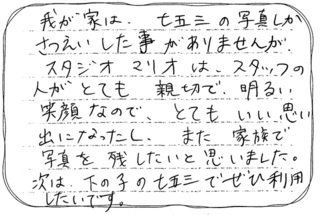 我が家は、七五三の写真しか
さつえいした事がありませんが、
スタジオマリオは、スタッフの
人がとても親切で、明るい
笑顔なので、とてもいい思い
出になったし、また家族で
写真を残したいと思いました。
次は、下の子の七五三でぜひ利用
したいです。